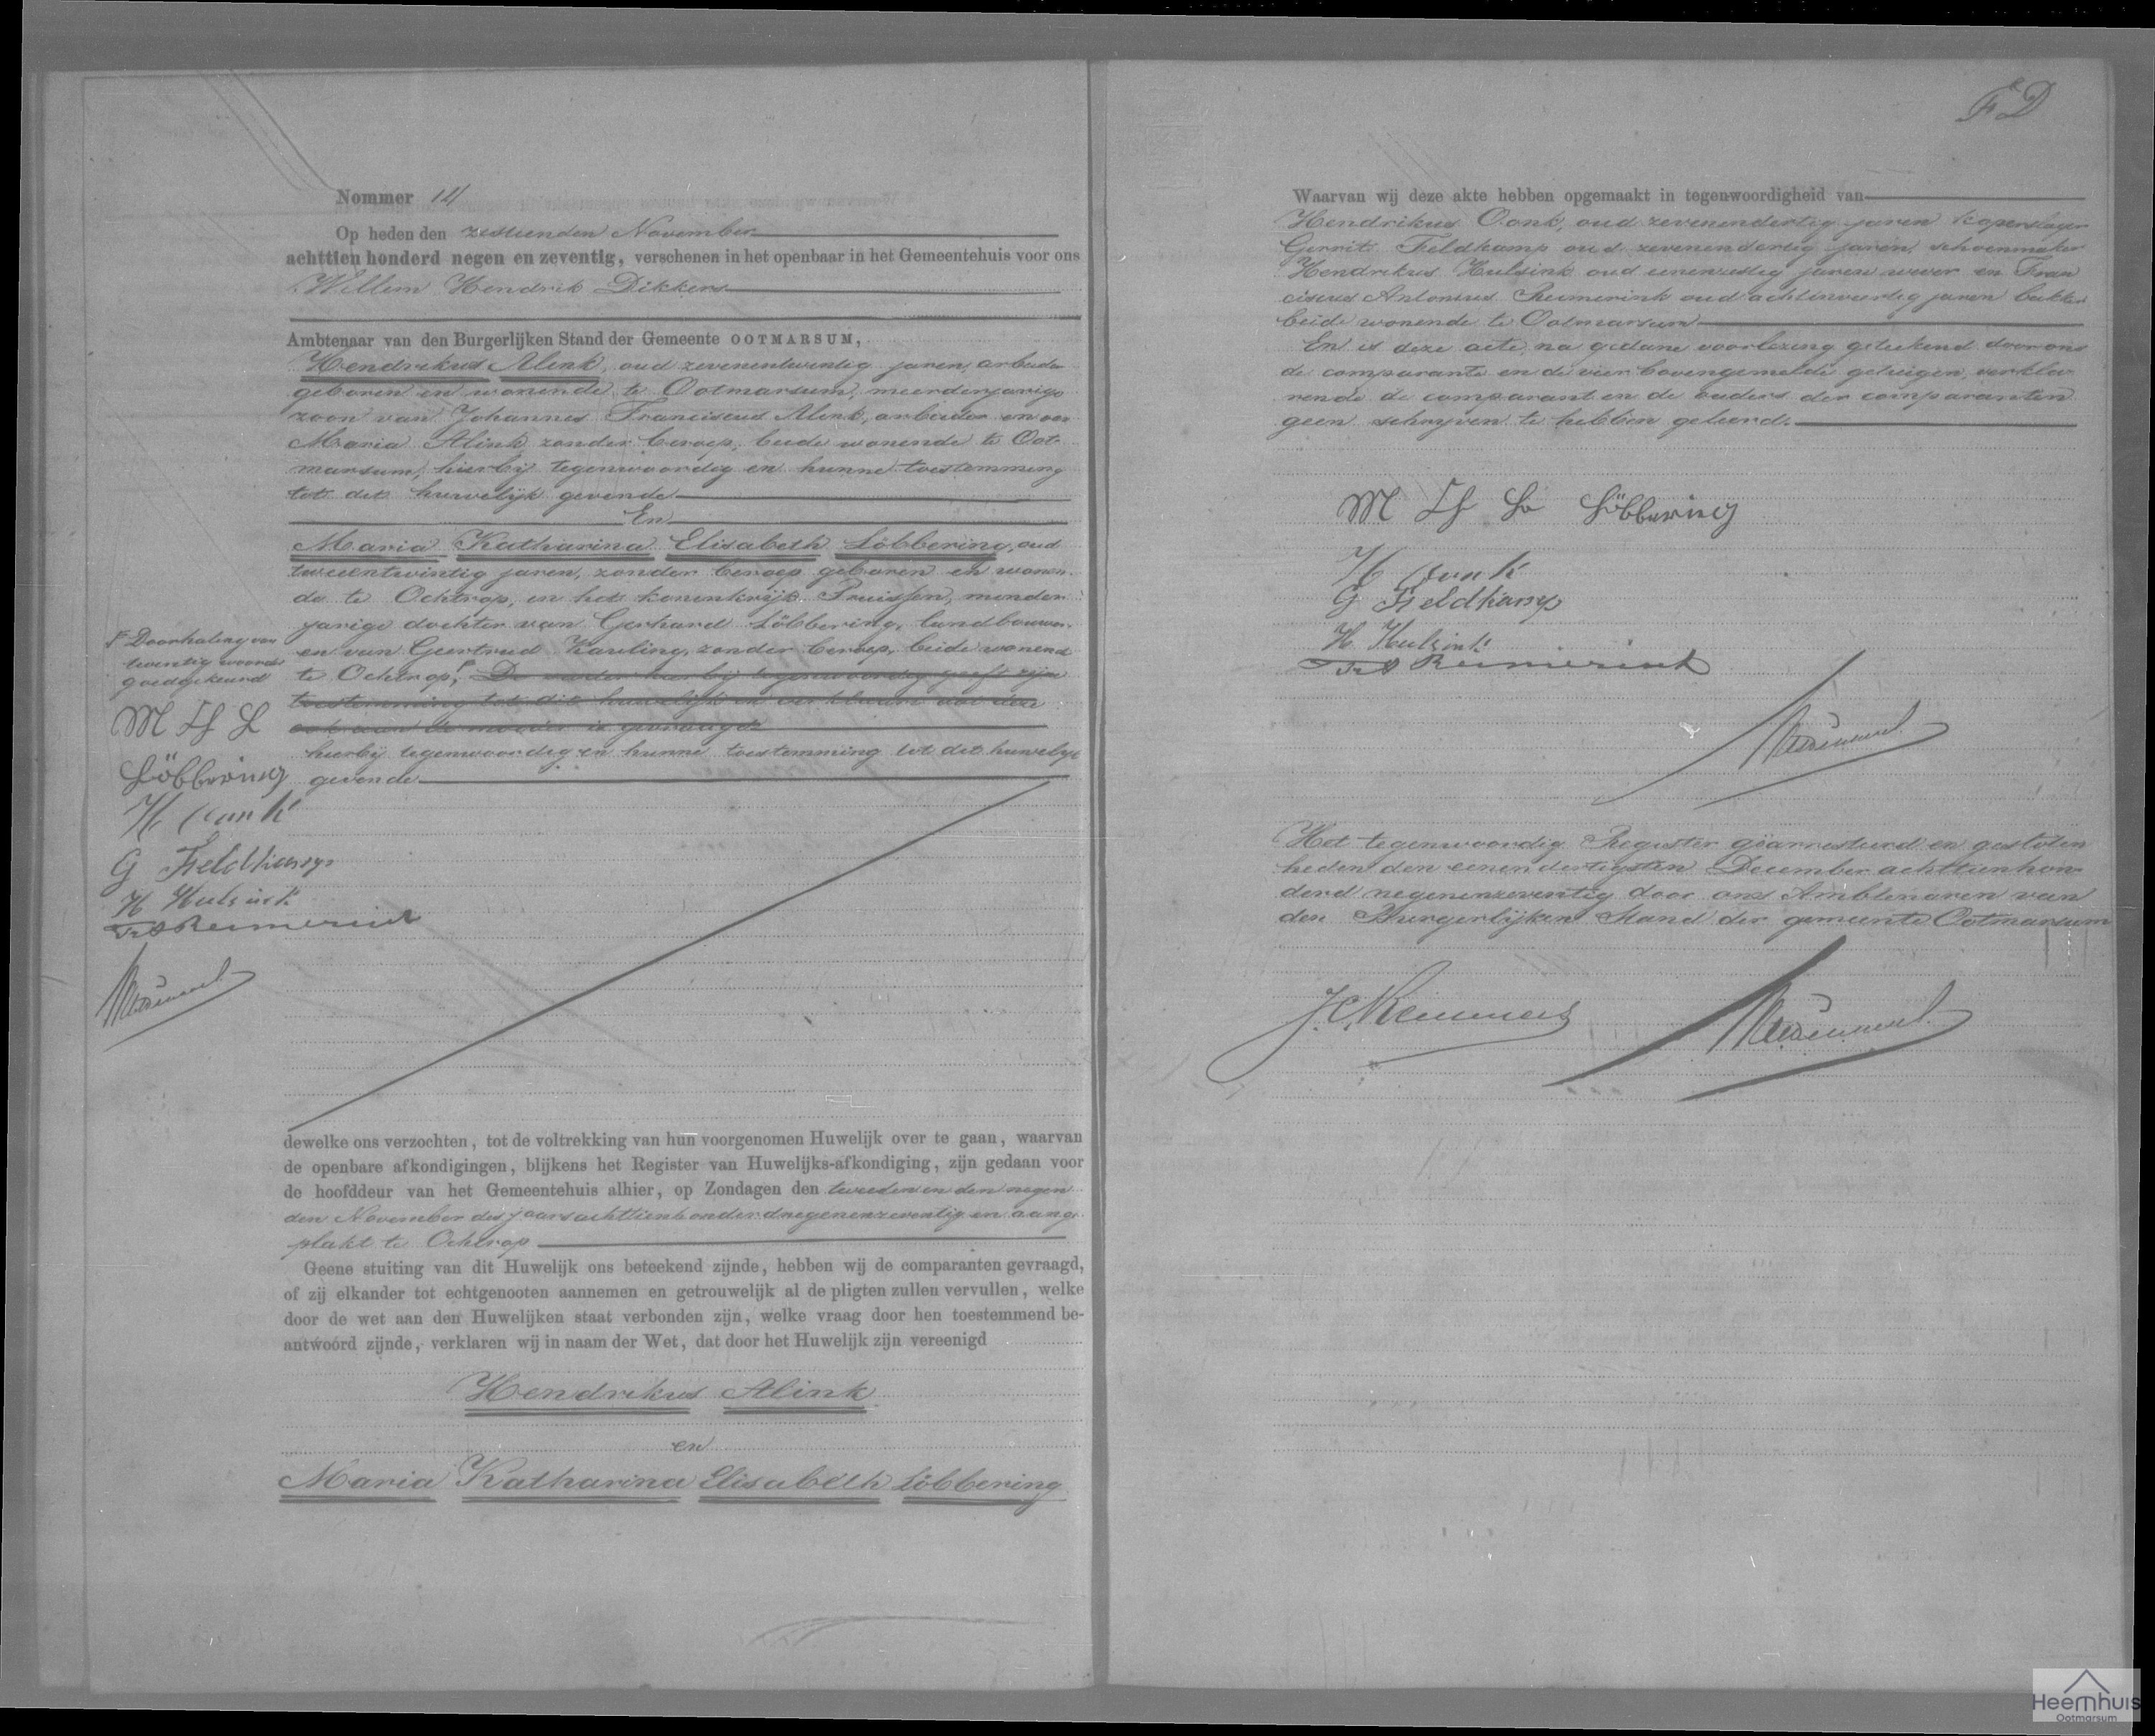 Nommer 14
Op heden den zestienden November
achttien honderd negen en zeventig, verschenen in het openbaar in het Gemeentehuis voor ons
Willem Hendrik Dikkers
Ambtenaar van den Burgerlijken Stand der Gemeente OOTMARSUM,
Hendrikus Alink, oud zevenentwintig jaren, arbeider
geboren en wonende te Ootmarsum, meerderjarige
zoon van Johannes Franciscus Alink, arbeider en van
Maria Alink zonder beroep, beide wonende te Oot-
marsum, hierbij tegenwoordig en hunne toestemming
tot dit huwelijk gevende
En
Maria Katharina Elisabeth Löbbering, oud
tweeentwintig jaren, zonder beroep geboren en wonen-
de te Ochtrop, in het koninkrijk Pruissen, minder-
jarige dochter van Gerhard Löbbering, landbouwer
en van Geertrud Kauling, zonder beroep, beide wonend
te Ochtrop, De vader hierbij tegenwoordig geeft zijne
toestemming tot dit huwelijk en verklaart dat deze
ook aan de moeder is gevraagd
hierbij tegenwoordig en hunne toestemming tot dit huwelijk
gevende
F Doorhaling van
twintig woorden
goedgekeurd
M Th L
Löbbering
H Oonk
G Feldkamp
H Hulsink
Fr A Reimerink
dewelke ons verzochten, tot de voltrekking van hun voorgenomen Huwelijk over te gaan, waarvan
de openbare afkondigingen, blijkens het Register van Huwelijks-afkondiging, zijn gedaan voor
de hoofddeur van het Gemeentehuis alhier, op Zondagen den tweeden en den negen
den November des jaars achttienhonderdnegenenzeventig en aange
plakt te Ochtrop
Geene stuiting van dit Huwelijk ons beteekend zijnde, hebben wij de comparanten gevraagd,
of zij elkander tot echtgenooten aannemen en getrouwelijk al de pligten zullen vervullen, welke
door de wet aan den Huwelijken staat verbonden zijn, welke vraag door hen toestemmend be-
antwoord zijnde, verklaren wij in naam der Wet, dat door het Huwelijk zijn vereenigd
Hendrikus Alink
en
Maria Katharina Elisabeth Löbbering
FD
Waarvan wij deze akte hebben opgemaakt in tegenwoordigheid van
Hendrikus Oonk, oud zevenendertig jaren koperslager
Gerrit Feldkamp oud zevenendertig jaren, schoenmaker
Hendrikus Hulsink oud eenenzestig jaren wever en Fran
ciscus Antonius Reimerink oud achtenveertig jaren bakker
beide wonende te Ootmarsum
En is deze acte, na gedane voorlezing geteekend door ons
de comparante en de vier bovengemelde getuigen, verkla-
rende de comparant en de ouders der comparanten
geen schrijven te hebben geleerd.
M Th L Löbbering
H Oonk
G Feldkamp
H Hulsink
Fr A Reimerink
Het tegenwoordig Register gëarresteerd en gesloten
heden den eenendertigsten December achttienhon-
derd negenenzeventig door ons Ambtenaren van
den Burgerlijken Stand der gemeente Ootmarsum
Heemhuis
Ootmarsum